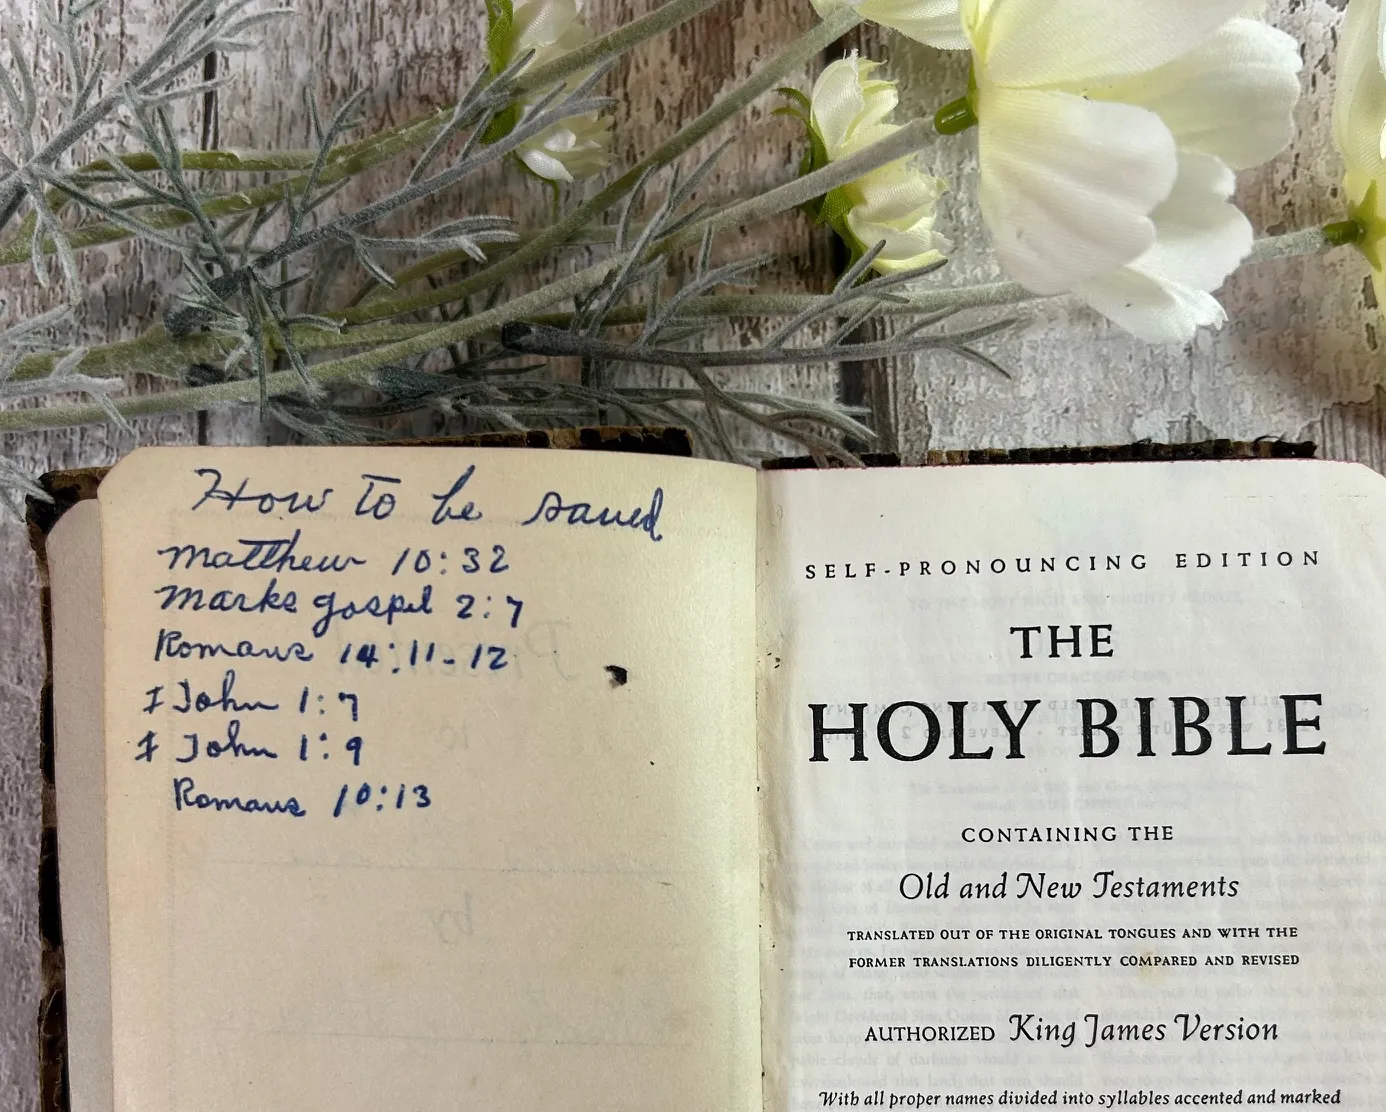 How To be saved
Matthew 10:32
Marks gospel 2:7
Romans 14:11-12
I John 1:7
I John 1:9
Romans 10:13
SELF-PRONOUNCING EDITION
THE
HOLY BIBLE
CONTAINING THE
Old and New Testaments
TRANSLATED OUT OF THE ORIGINAL TONGUES AND WITH THE
FORMER TRANSLATIONS DILIGENTLY COMPARED AND REVISED
AUTHORIZED King James Version
With all proper names divided into syllables accented and marked